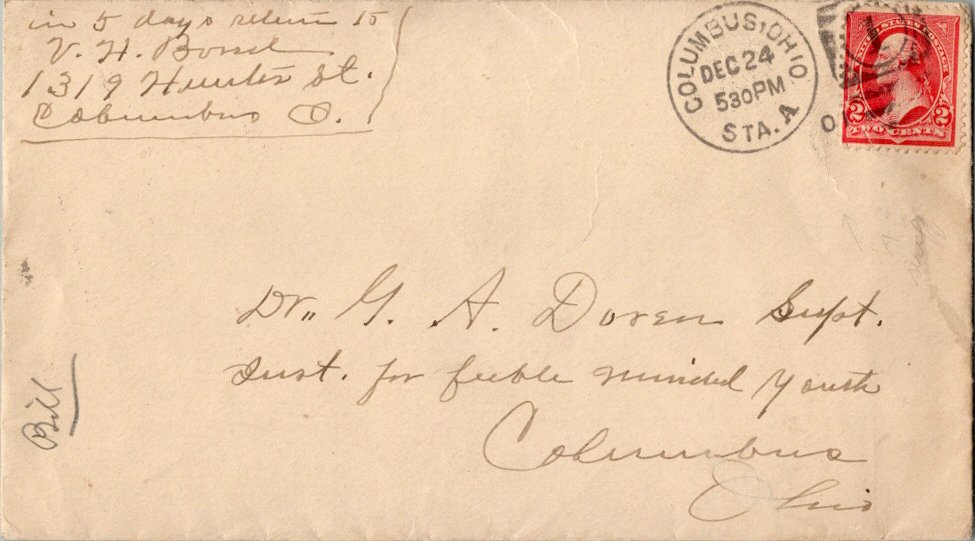 in 5 days return to
V. H.
1319 Hunter St.
Columbus O.
COLUMBUS, OHIO
DEC 24
530PM
STA. A
2 2
TWO CENTS
O
Dr. G. A. Doren Supt.
Inst. for feeble minded youth
Columbus
Ohio
Bill